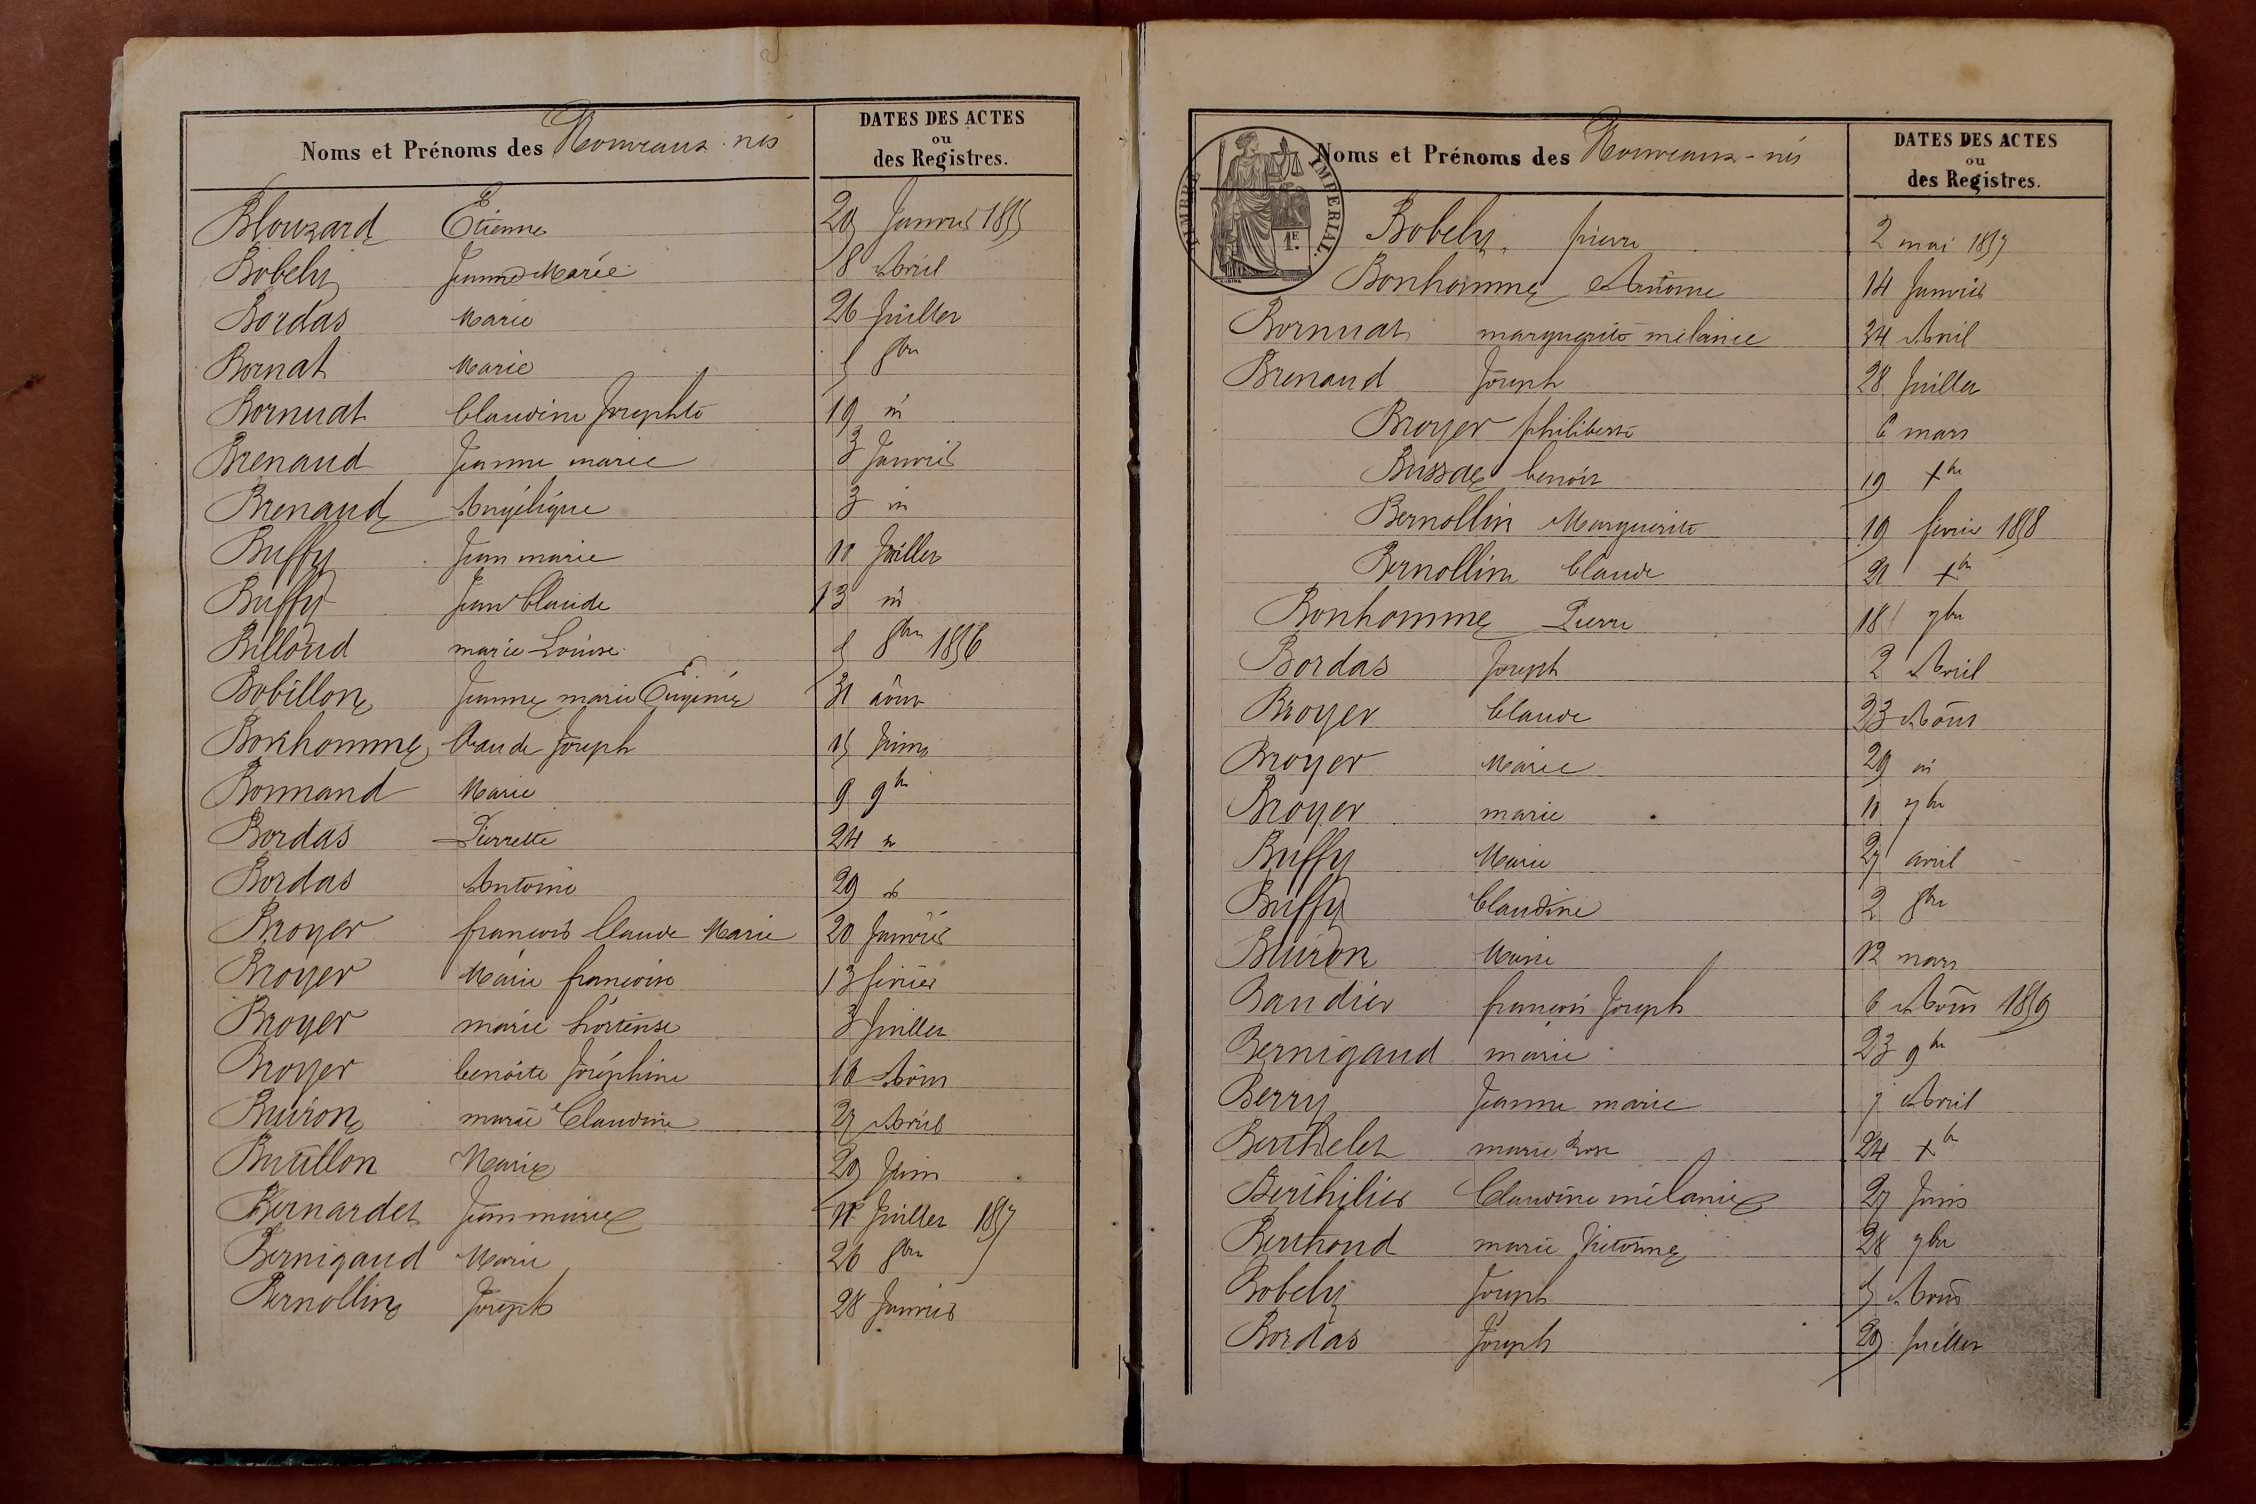 Noms et Prénoms des Nouveaux-nés
DATES DES ACTES
ou
des Registres.
Blouzard Etienne 29 Janvier 1855
Bobely Jeanne Marie 8 Avril
Bordas Marie 26 Juillet
Bornat Marie 5 8bre
Bornuat Claudine Josephte 19 id
Brenaud Jeanne marie 3 Janvier
Brenaud Angélique 3 id
Buffy Jean marie 10 Juillet
Buffy Jean Claude 13 id
Billoud marie Louise 5 8bre 1856
Bobillon Jeanne marie Eugénie 31 août
Bonhomme Claude Joseph 15 Juin
Bonnand Marie 9 9bre
Bordas Pierrette 24
Bordas Antoine 29
Broyer francois Claude Marie 20 Janvier
Broyer Marie francoise 13 février
Broyer marie hortense 3 Juillet
Broyer benoite Joséphine 16 Août
Buiron marie Claudine 27 Avril
Butillon Marie 29 Juin
Bernardet Jean marie Juillet 1857
Bernigaud Marie 26 8bre
Bernollin Joseph 28 Janvier
TIMBRE IMPERIAL.
Noms et Prénoms des Nouveaux-nés
DATES DES ACTES
ou
des Registres.
Bobely pierre 2 mai 1857
Bonhomme Antoine 14 Janvier
Bornuat marguerite mélanie Avril
Brenaud Joseph 28 Juillet
Broyer philiberte 6 mars
Bussae benoit 19 Xbre
Bernollin Marguerite 19 février 1858
Bernollin Claude 21 Xbre
Bonhomme Pierre 18 7bre
Bordas Joseph 2 Avril
Broyer Claude 23 Août
Broyer Marie 29 id
Broyer marie 10 7bre
Buffy Marie 27 avril
Buffy Claudine 2 8bre
Buiron Marie 12 mars
Baudier francois Joseph 6 Août 1859
Bernigaud marie 23 9bre
Berry Jeanne marie 7 Avril
Berthelet marie Rose 24 Xbre
Berthilier Claudine mélanie 27 Juin
Berthoud marie Victorine 28 7bre
Bobely Joseph 5 Août
Bordas Joseph 29 Juillet